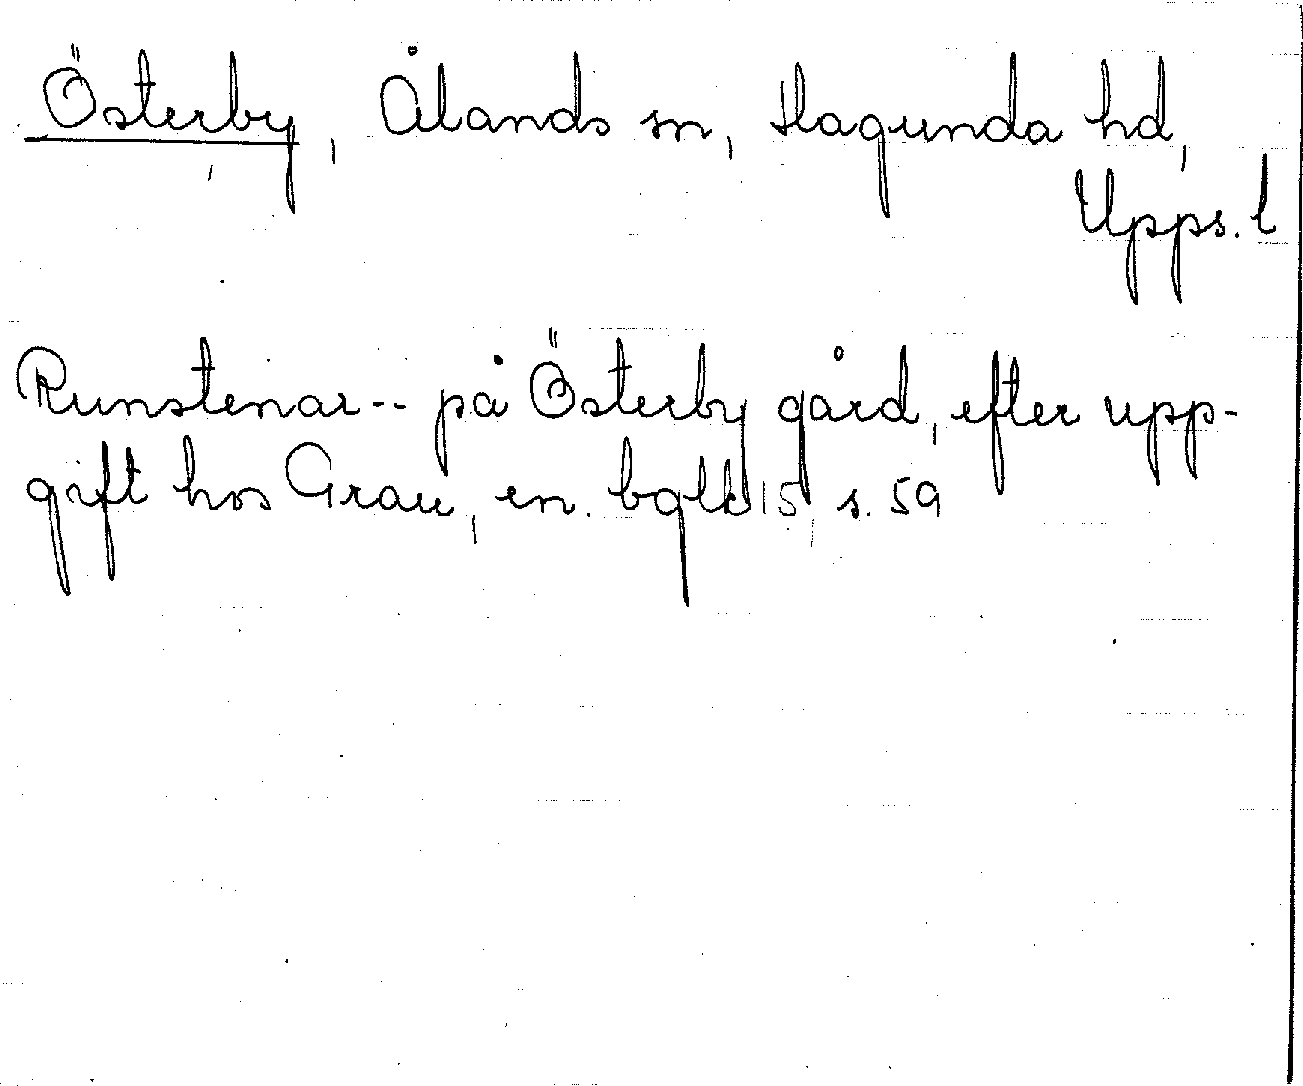 Österby, Ålands sn, Hagunda hd,
Upps. l
Runstenar -- på Österby gård, efter upp-
gift hos Grau, en. bglk 15, s. 59